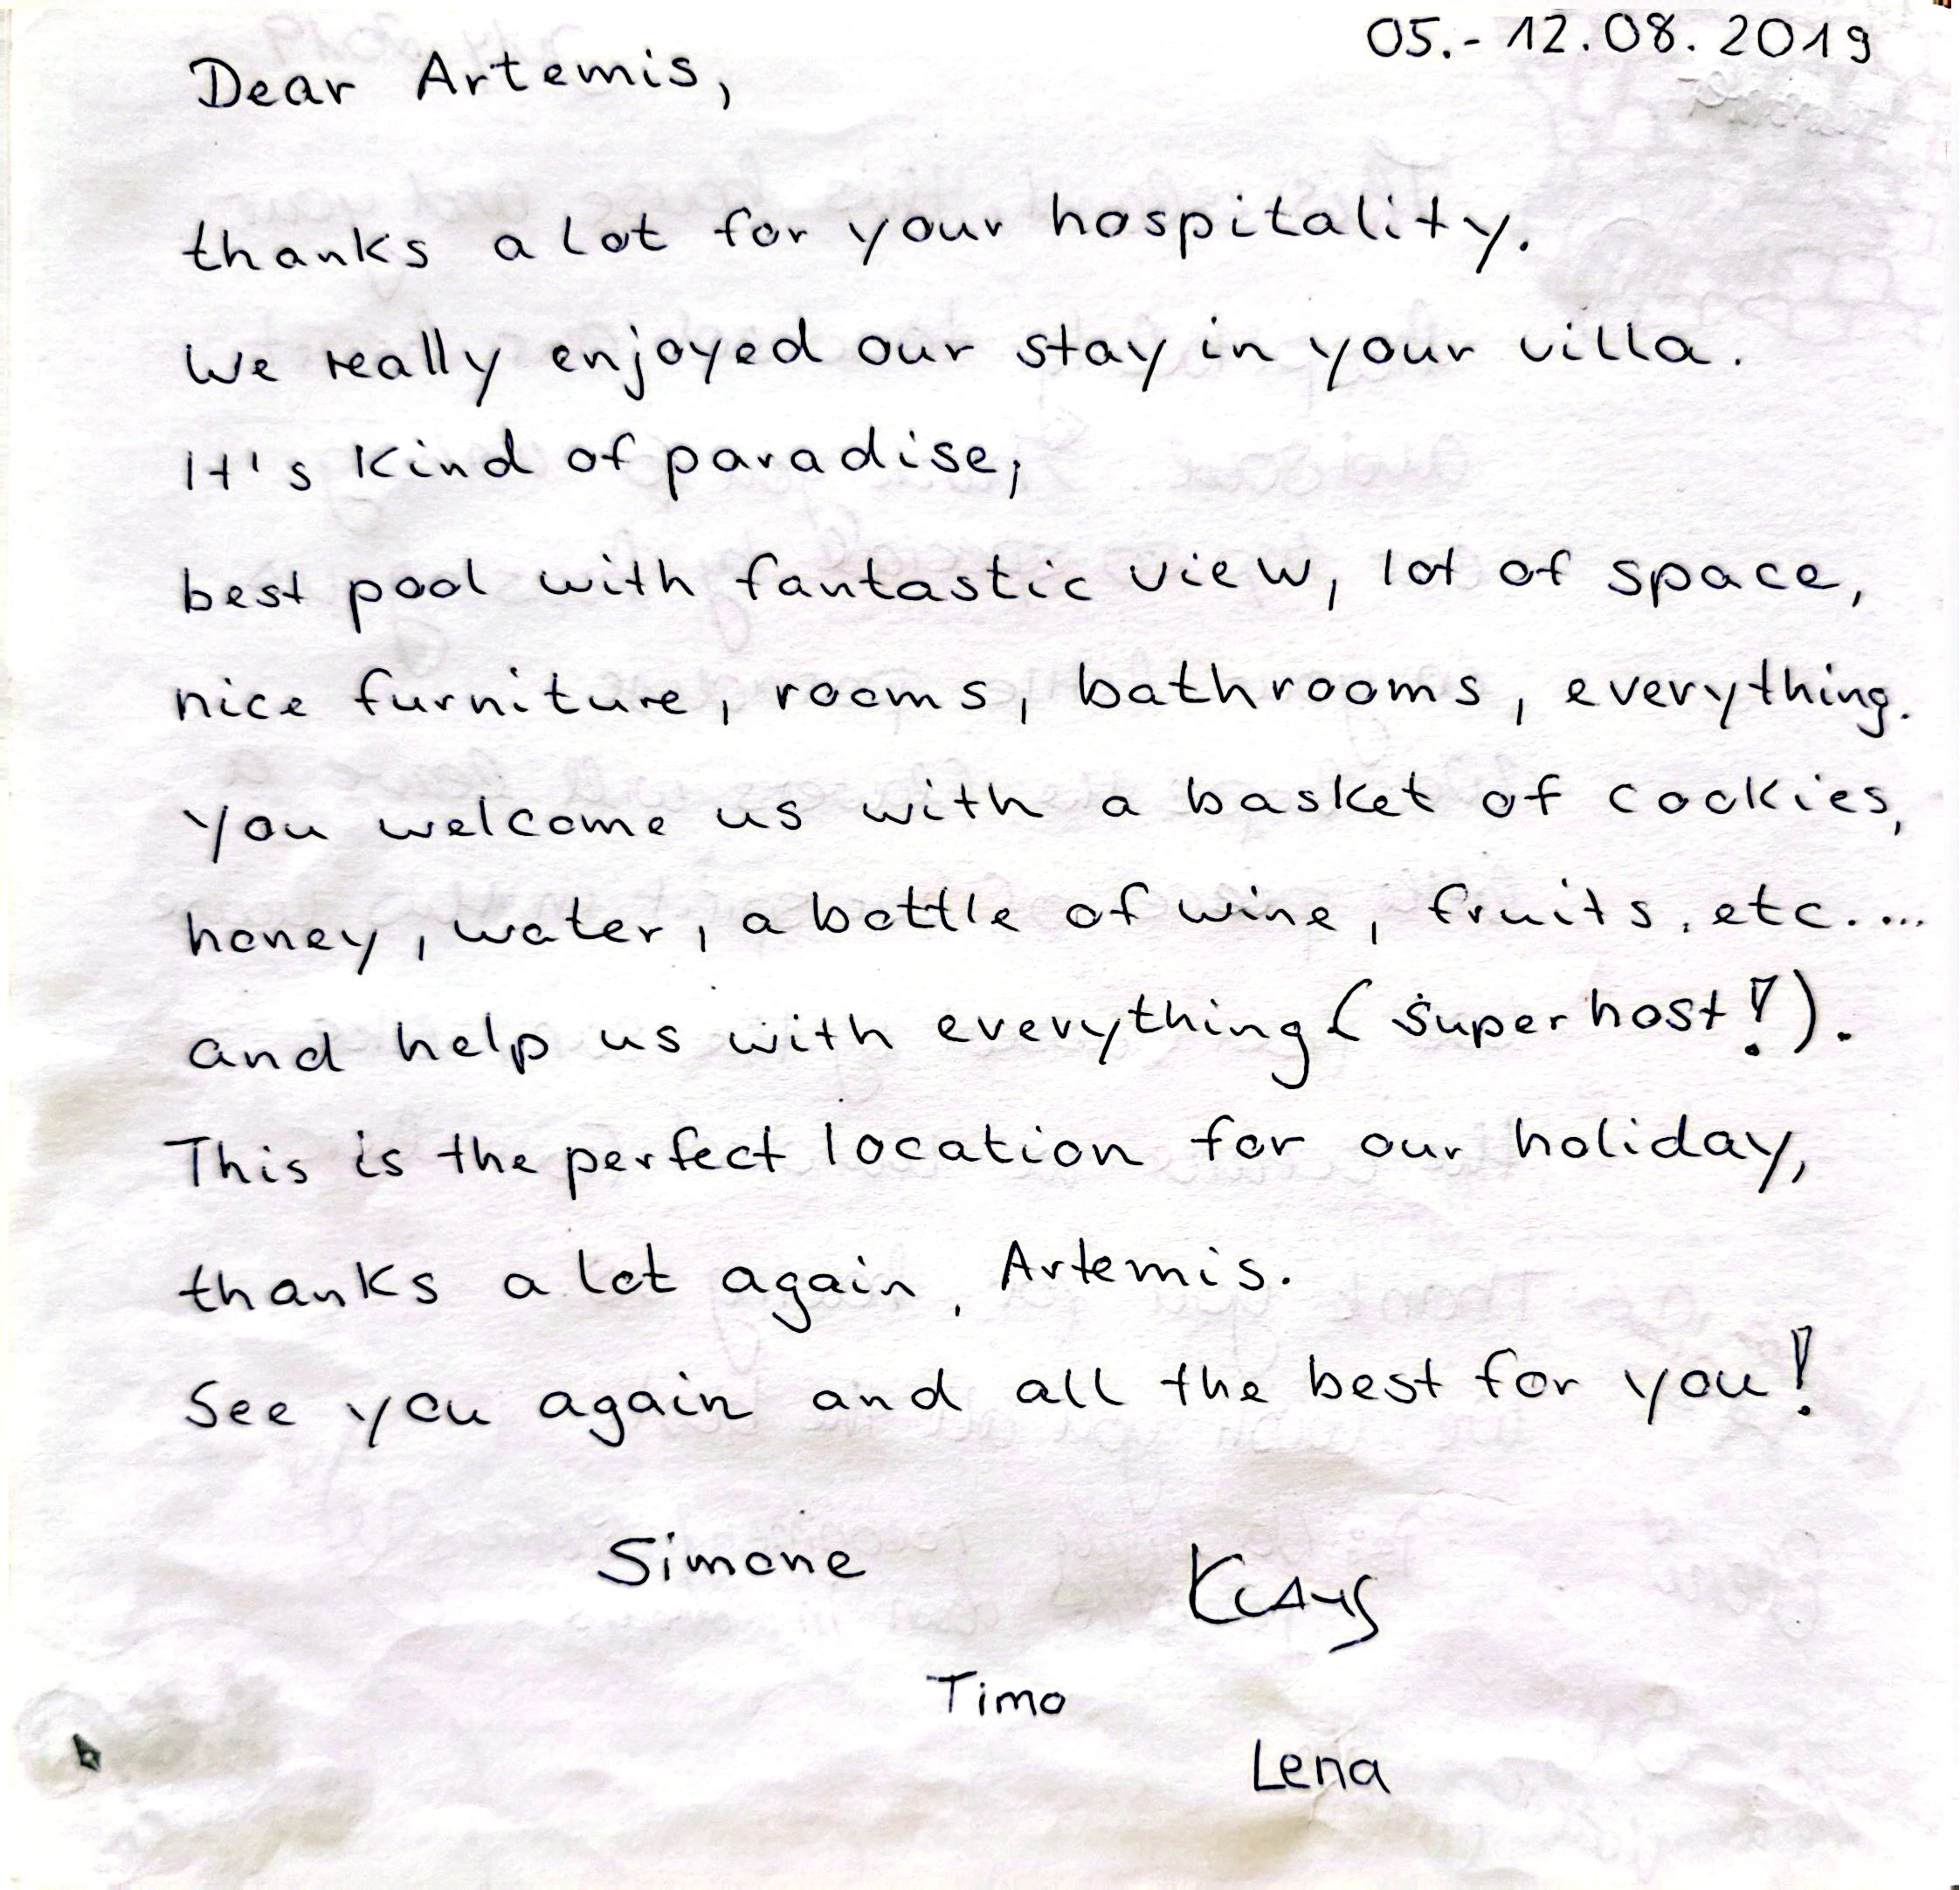 05.- 12.08.2019
Dear Artemis,
thanks a lot for your hospitality.
We really enjoyed our stay in your villa.
It's kind of paradise,
best pool with fantastic view, lot of space,
nice furniture, rooms, bathrooms, everything.
You welcome us with a basket of cookies,
honey, water, a bottle of wine, fruits, etc....
and help us with everything (superhost!).
This is the perfect location for our holiday,
thanks a lot again, Artemis.
See you again and all the best for you!
Simone
Klaus
Timo
Lena